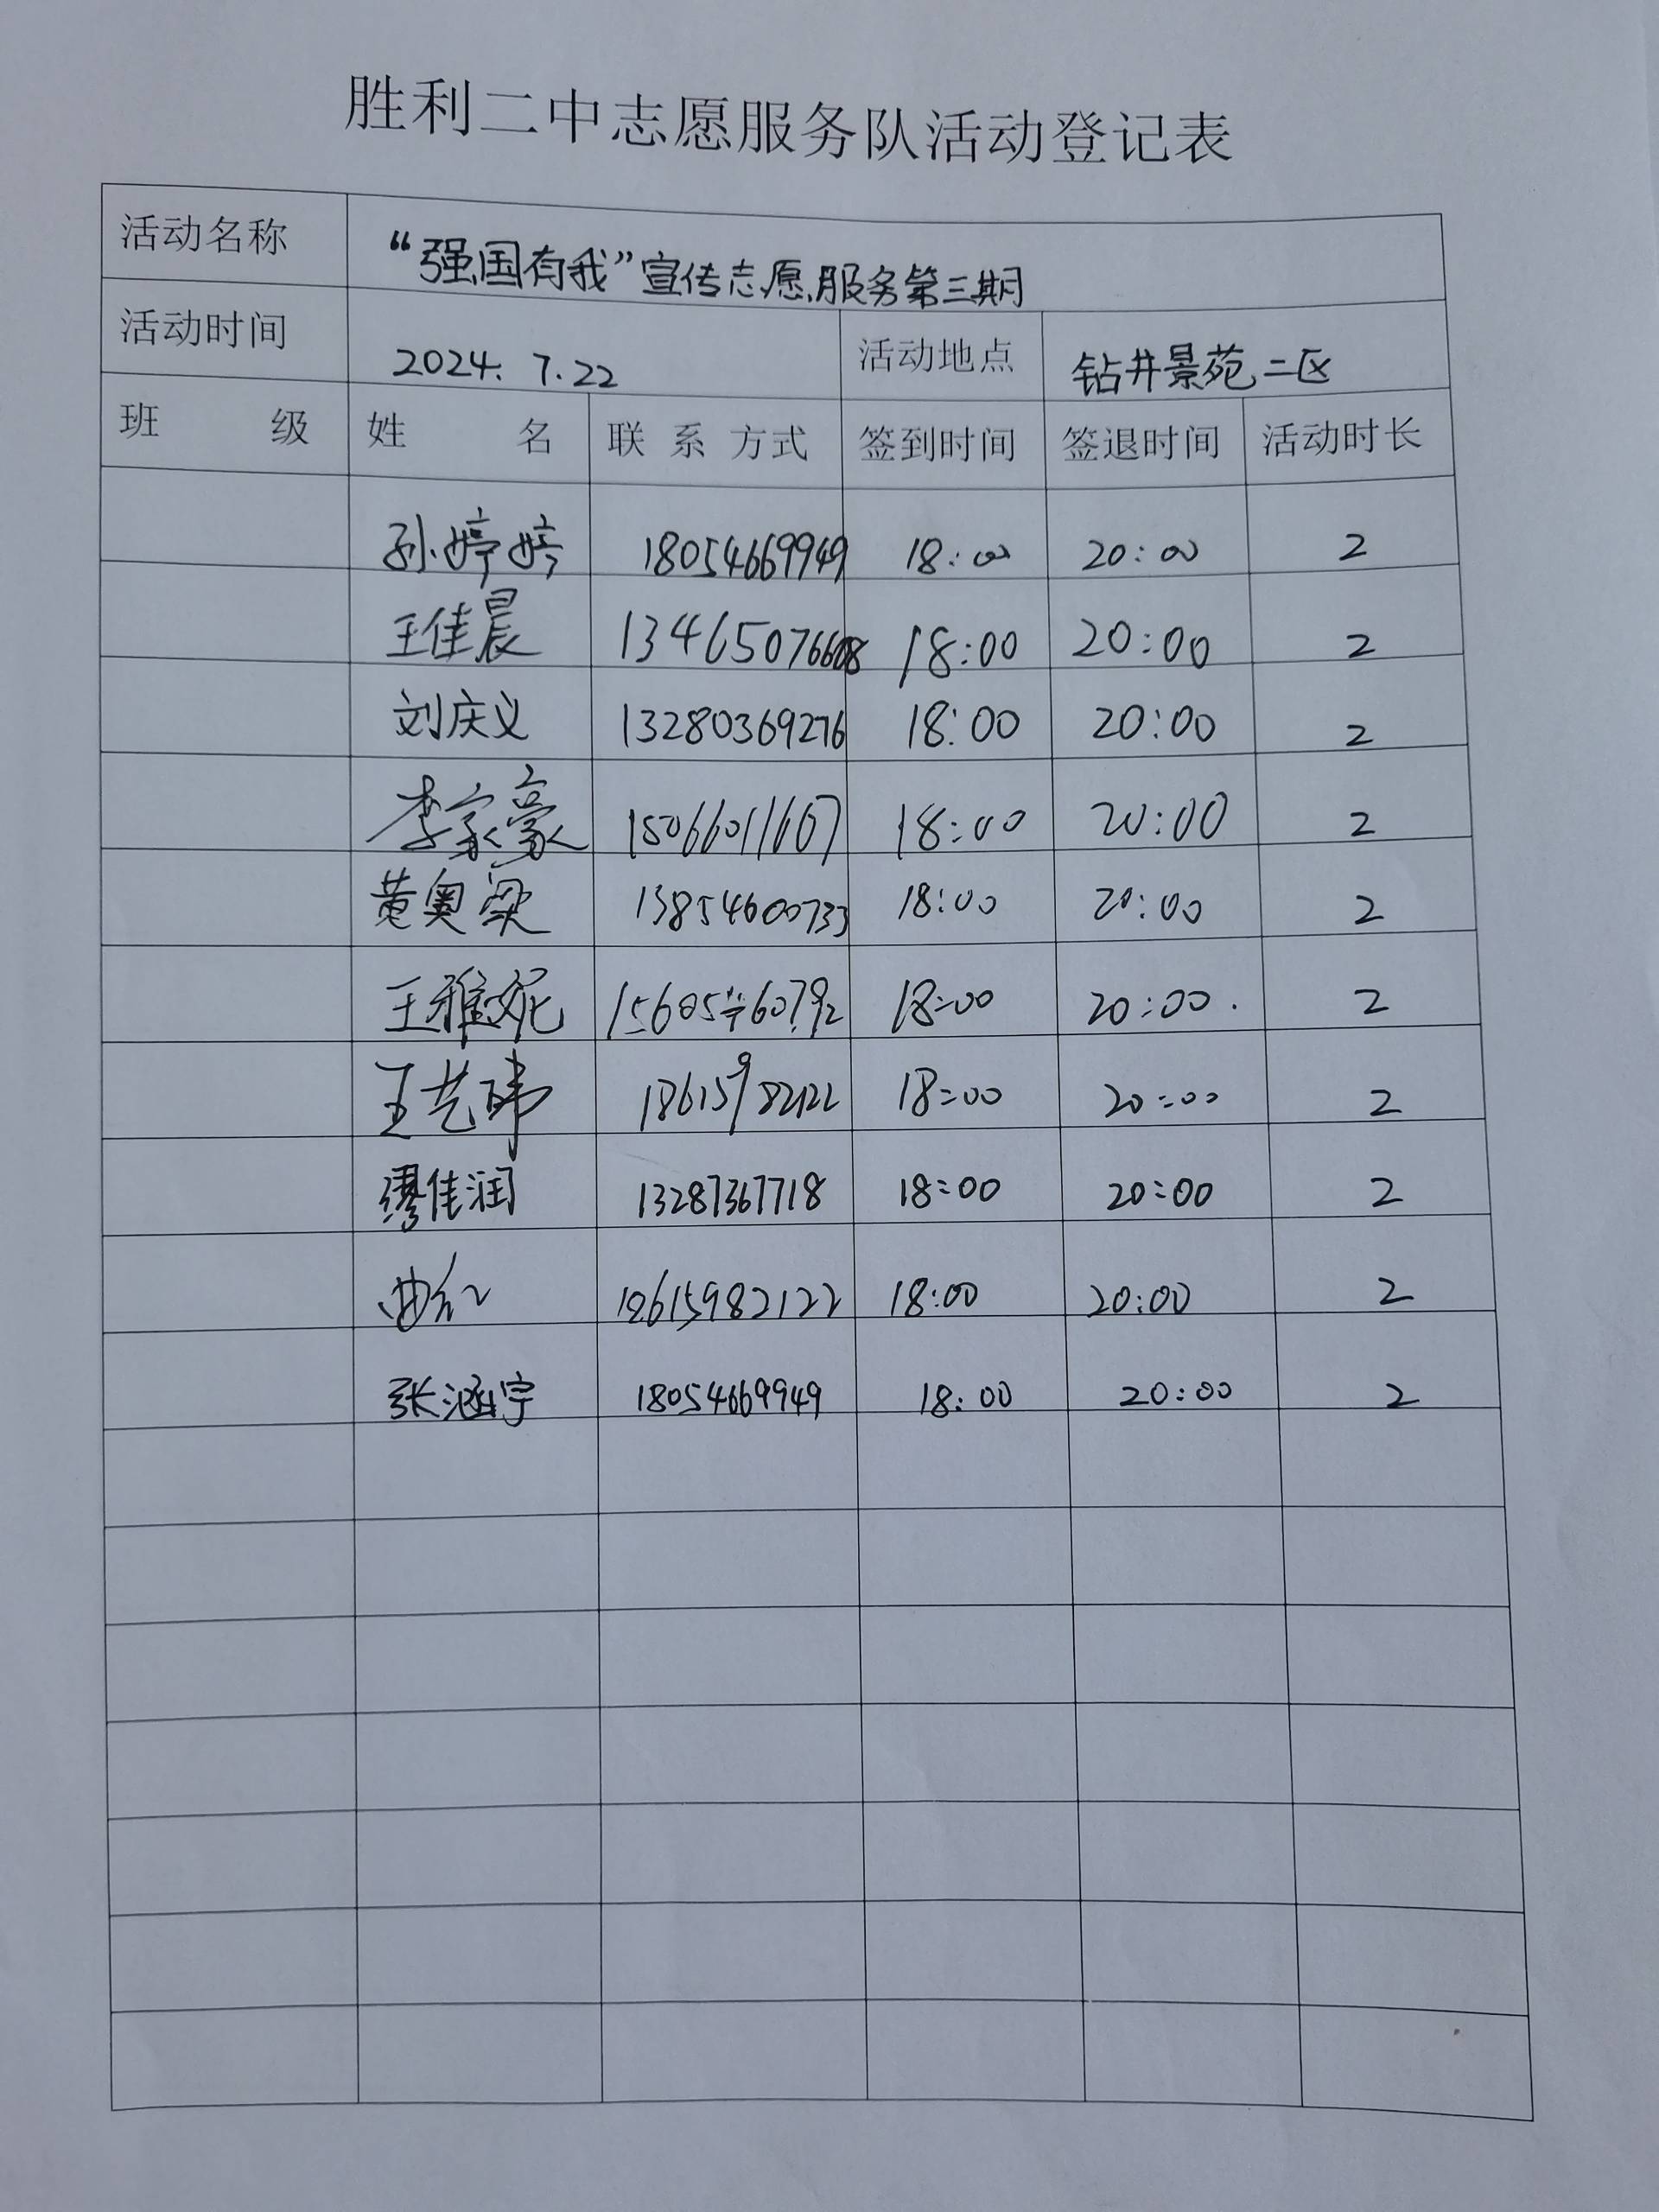 胜利二中志愿服务队活动登记表
活动名称 “强国有我”宣传志愿服务第三期
活动时间 2024. 7.22 活动地点 钻井景苑二区
班 级 姓 名 联 系 方式 签到时间 签退时间 活动时长
孙婷婷 18054669949 18:00 20:00 2
王佳晨 13465076608 18:00 20:00 2
刘庆义 13280369276 18:00 20:00 2
李家豪 15066011607 18:00 20:00 2
黄奥梁 13854600733 18:00 20:00 2
王雅妮 18:00 20:00. 2
王艺 18615982122 18:00 20:00 2
缪佳润 13287367718 18:00 20:00 2
曲红 18615982122 18:00 20:00 2
张涵宇 18054669949 18:00 20:00 2